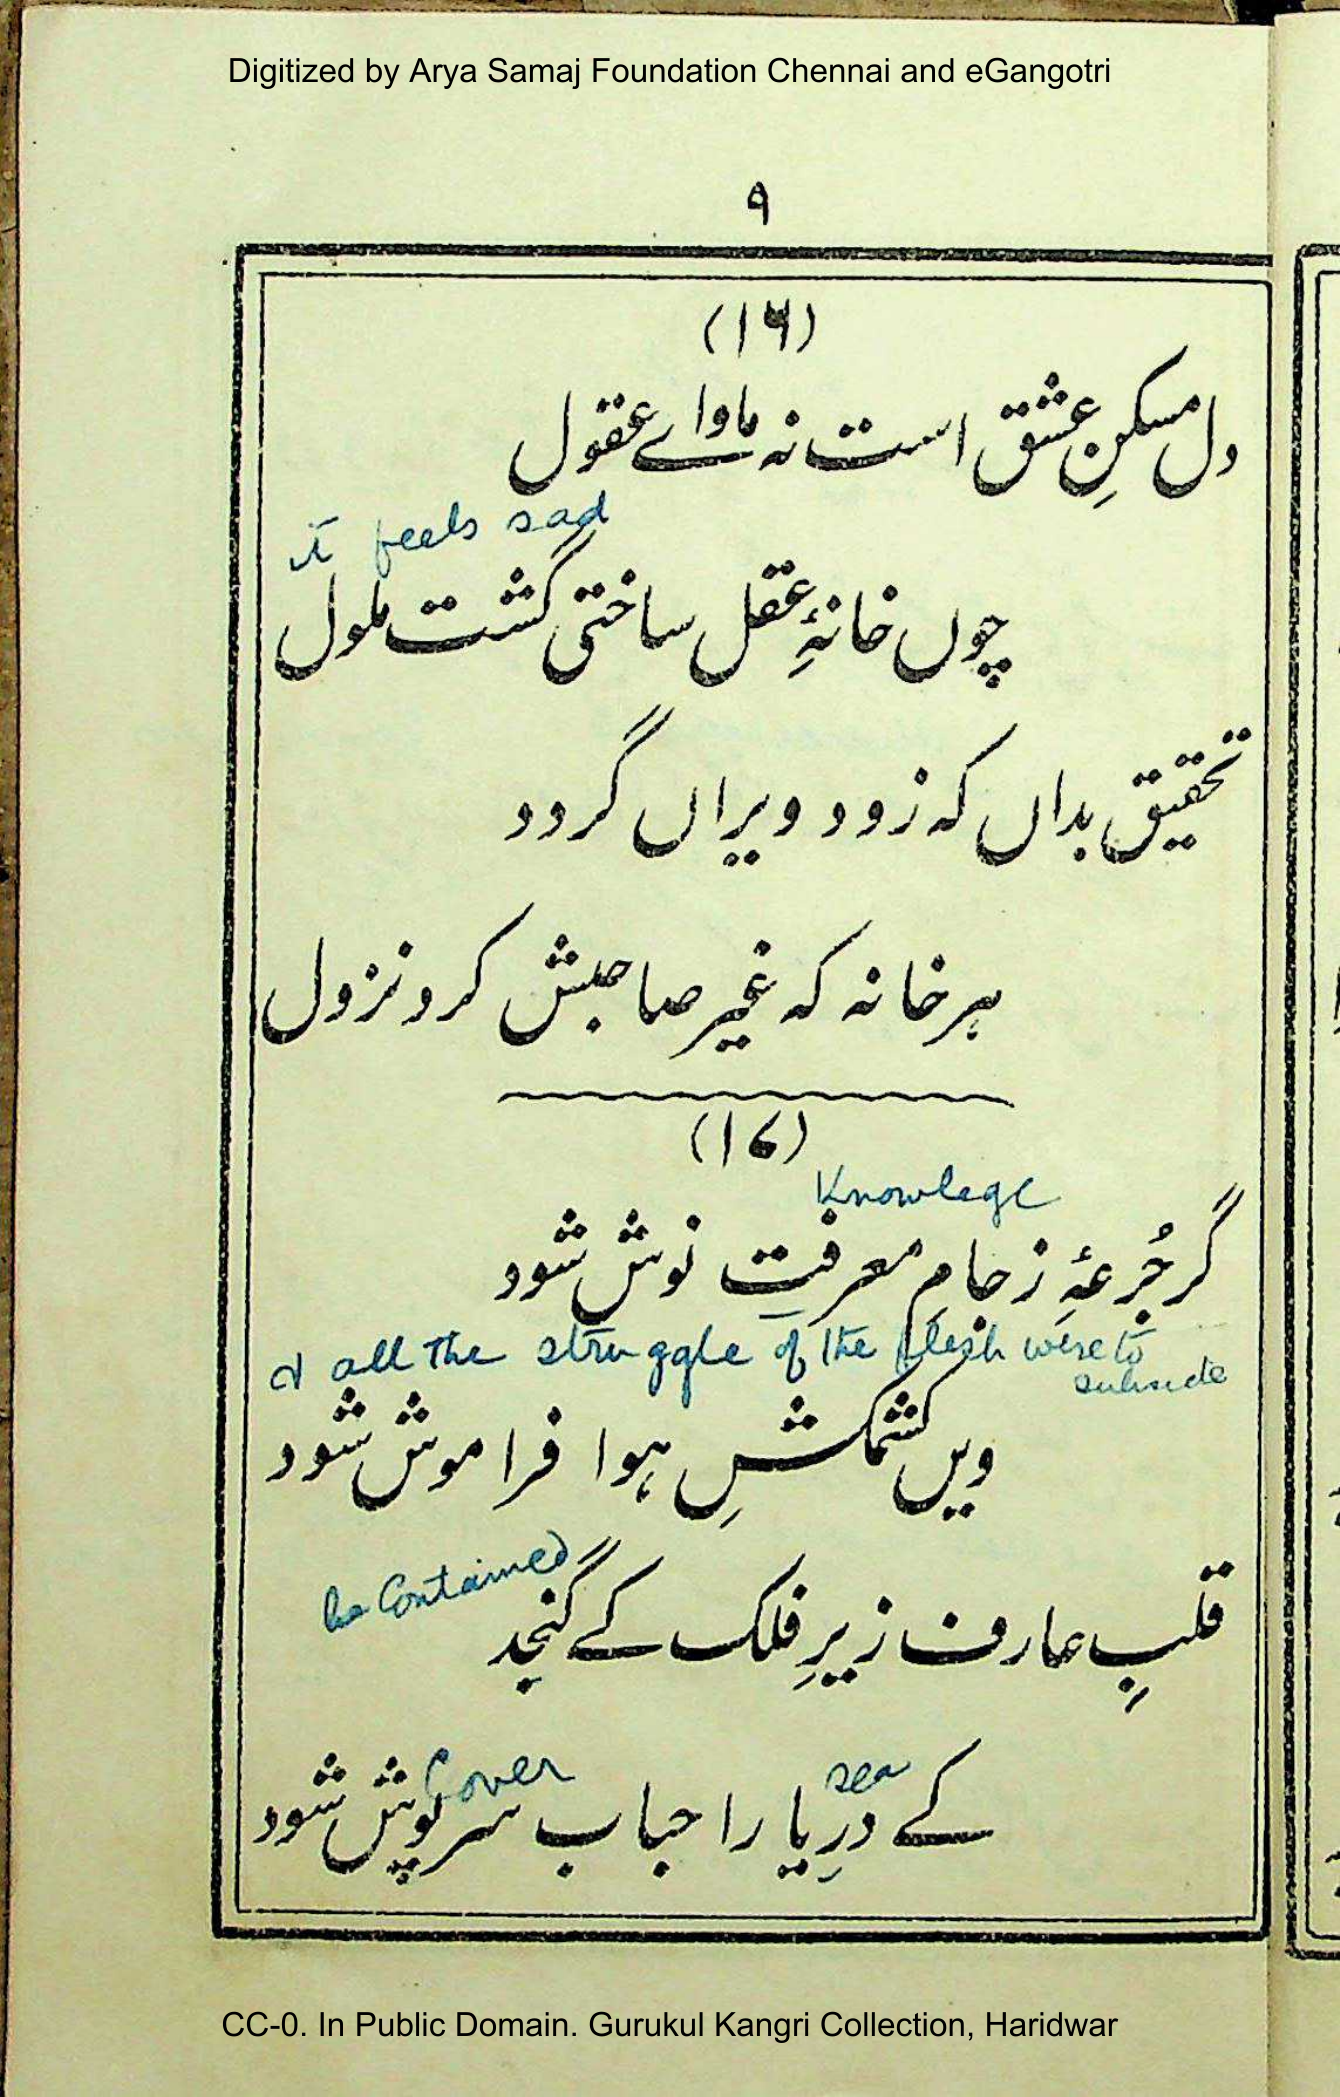 Digitized by Arya Samaj Foundation Chennai and eGangotri
۹
(۱۶)
دل مسکنِ عشق است نہ ماواے عقول
it feels sad
چوں خانۂِ عقل ساختی گشت ملول
تحقیق بداں کہ زود ویراں گردد
ہر خانہ کہ غیر صاحبش کرد نزول
(۱۷)
Knowlege
گر جُرعۂِ ز جامِ معرفتِ نوش شود
& all the struggle of the flesh were to
subside
ویں کشمکشِ ہوا فراموش شود
be Contained
قلبِ عارف زیرِ فلک کے گنجد
Cover sea
کے دریا را حباب سرپوش شود
CC-0. In Public Domain. Gurukul Kangri Collection, Haridwar